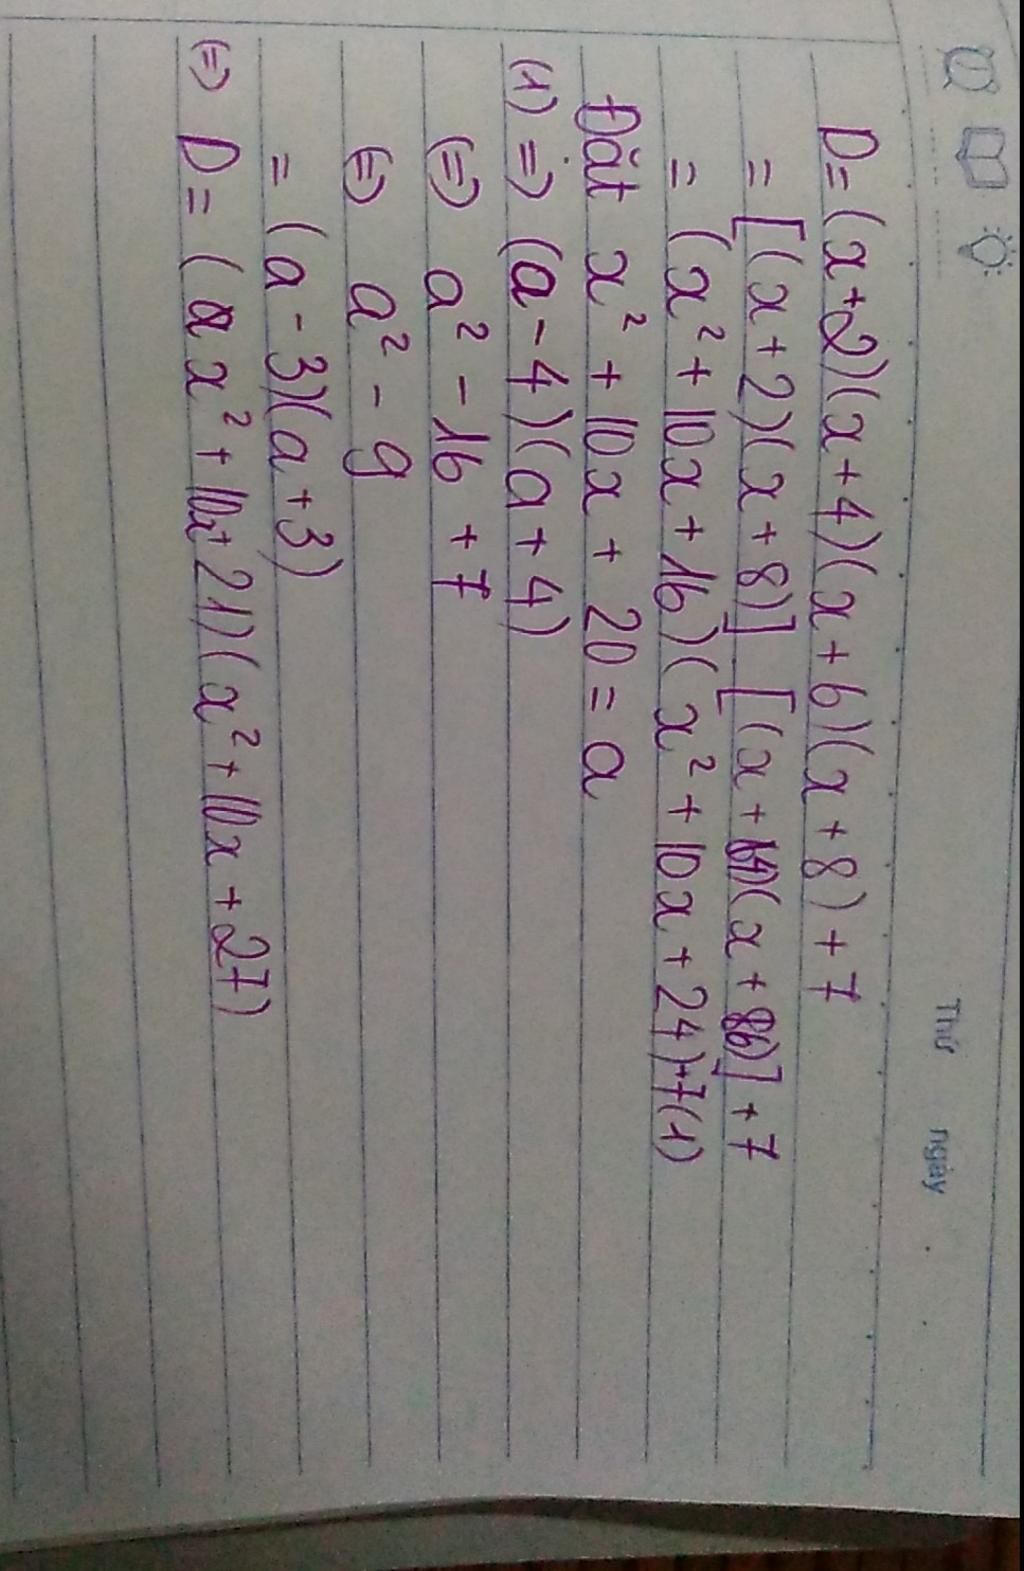 Thứ ngày
D = (x+2)(x+4)(x+6)(x+8)+7
= [(x+2)(x+8)] [(x+4)(x+6)]+7
= (x²+10x+16)(x²+10x+24)+7(1)
Đặt x²+10x+20=a
(1) => (a-4)(a+4)
(=) a²-16+7
(=) a²-9
= (a-3)(a+3)
(=) D = (x²+10x+21)(x²+10x+27)